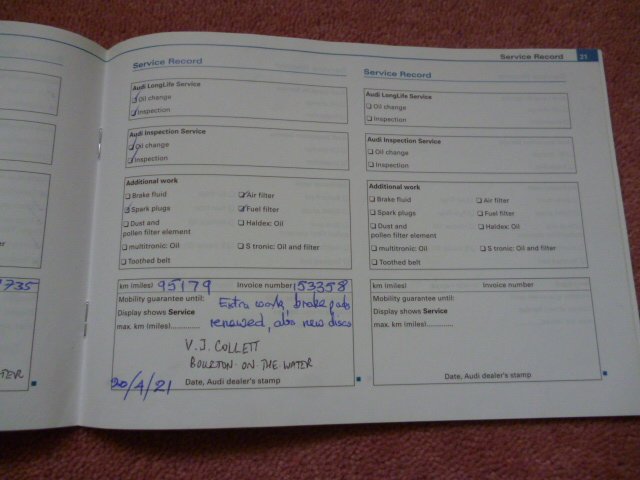 Service Record 21
Service Record
Audi LongLife Service
Oil change
Inspection
Audi Inspection Service
Oil change
Inspection
Additional work
Brake fluid
Air filter
Spark plugs
Fuel filter
Dust and
pollen filter element
Haldex: Oil
multitronic: Oil
S tronic: Oil and filter
Toothed belt
km (miles) 95179 Invoice number 153358
Mobility guarantee until: Extra work, brake pads
Display shows Service renewed, also new discs
max. km (miles)..............
V.J. COLLETT
BOURTON ON THE WATER
20/4/21 Date, Audi dealer's stamp
Service Record
Audi LongLife Service
Oil change
Inspection
Audi Inspection Service
Oil change
Inspection
Additional work
Brake fluid
Air filter
Spark plugs
Fuel filter
Dust and
pollen filter element
Haldex: Oil
multitronic: Oil
S tronic: Oil and filter
Toothed belt
km (miles) Invoice number
Mobility guarantee until:
Display shows Service
max. km (miles)..............
Date, Audi dealer's stamp
735